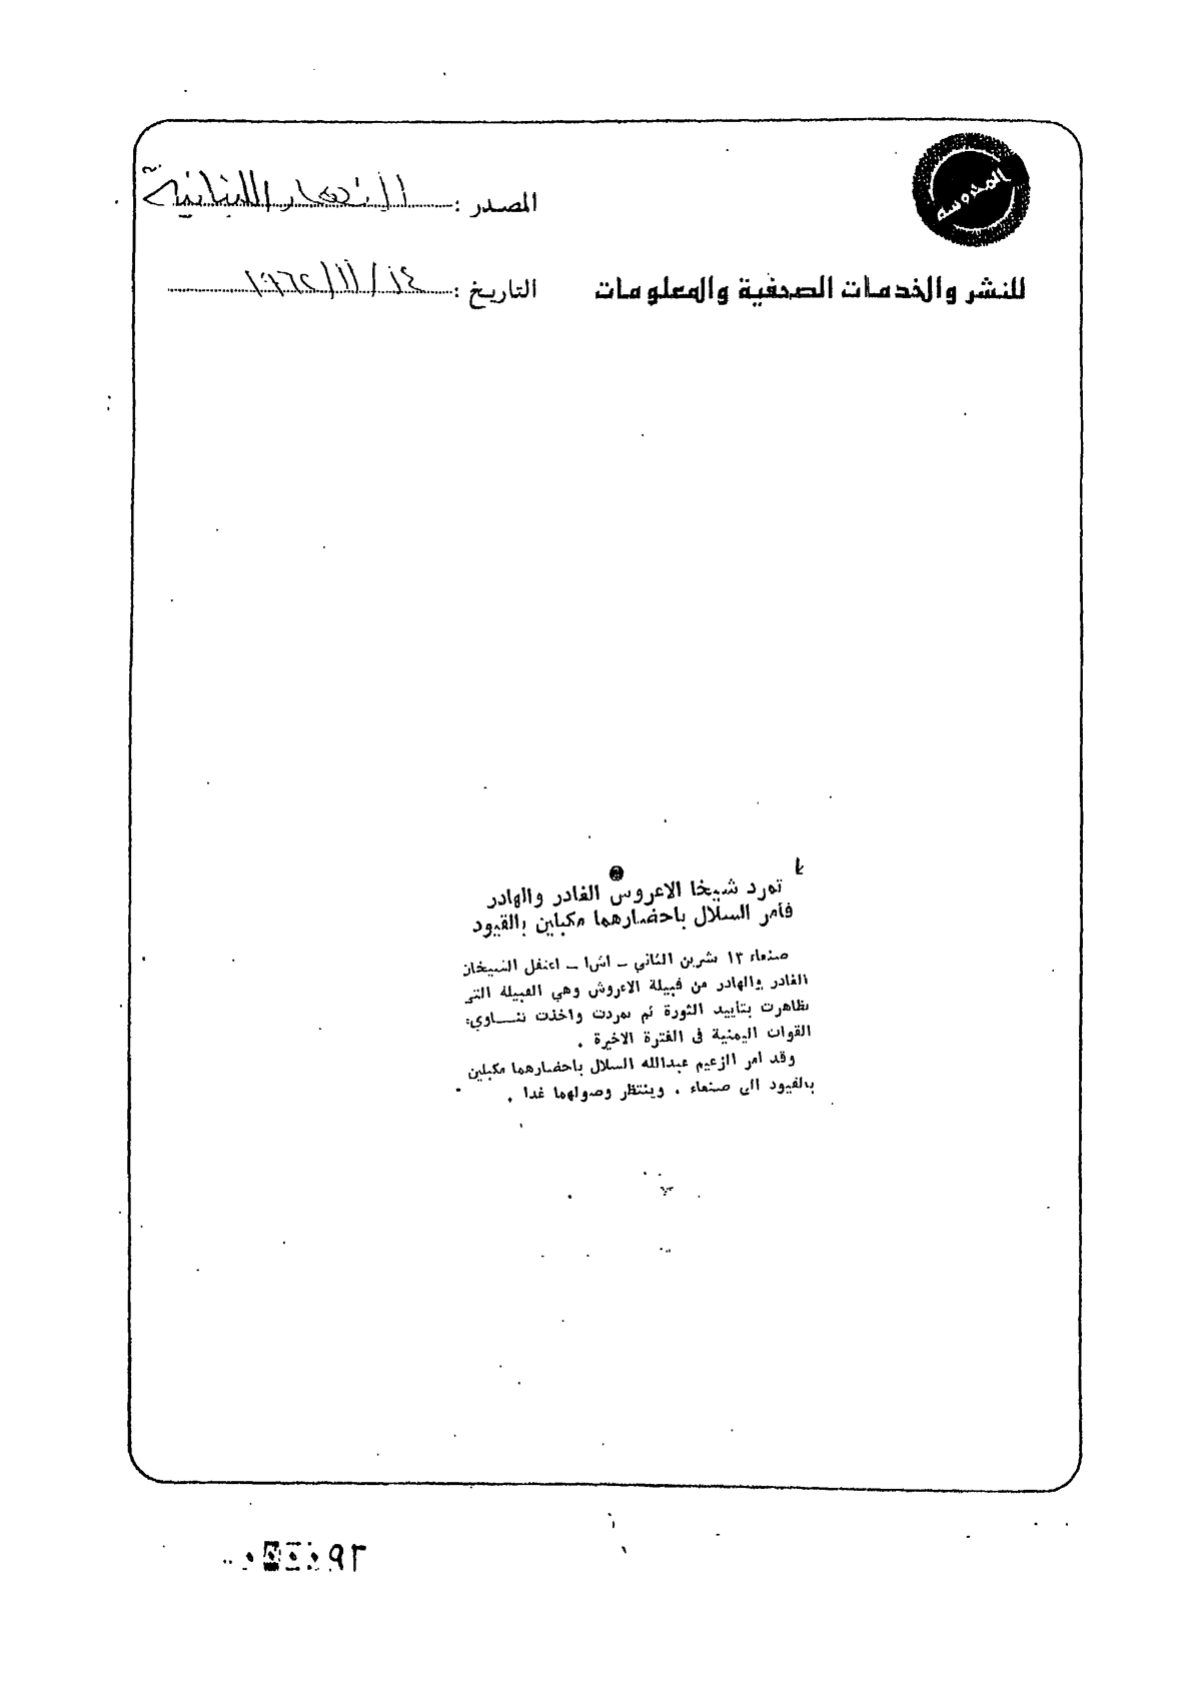 المحروسة
المصدر : النهار اللبنانية
للنشر والخدمات الصحفية والمعلومات
التاريخ : ١٤ / ١١ / ١٩٦٢
تمرد شيخا الاعروس الغادر والهادر
فأمر السلال باحضارهما مكبلين بالقيود
صنعاء ١٣ تشرين الثاني ـ اشا ـ اعتقل الشيخان
الغادر والهادر من قبيلة الاعروش وهي القبيلة التي
تظاهرت بتأييد الثورة ثم تمردت واخذت تنـــاوىء
القوات اليمنية في الفترة الاخيرة .
وقد امر الزعيم عبدالله السلال باحضارهما مكبلين
بالقيود الى صنعاء . وينتظر وصولهما غدا .
٩٣